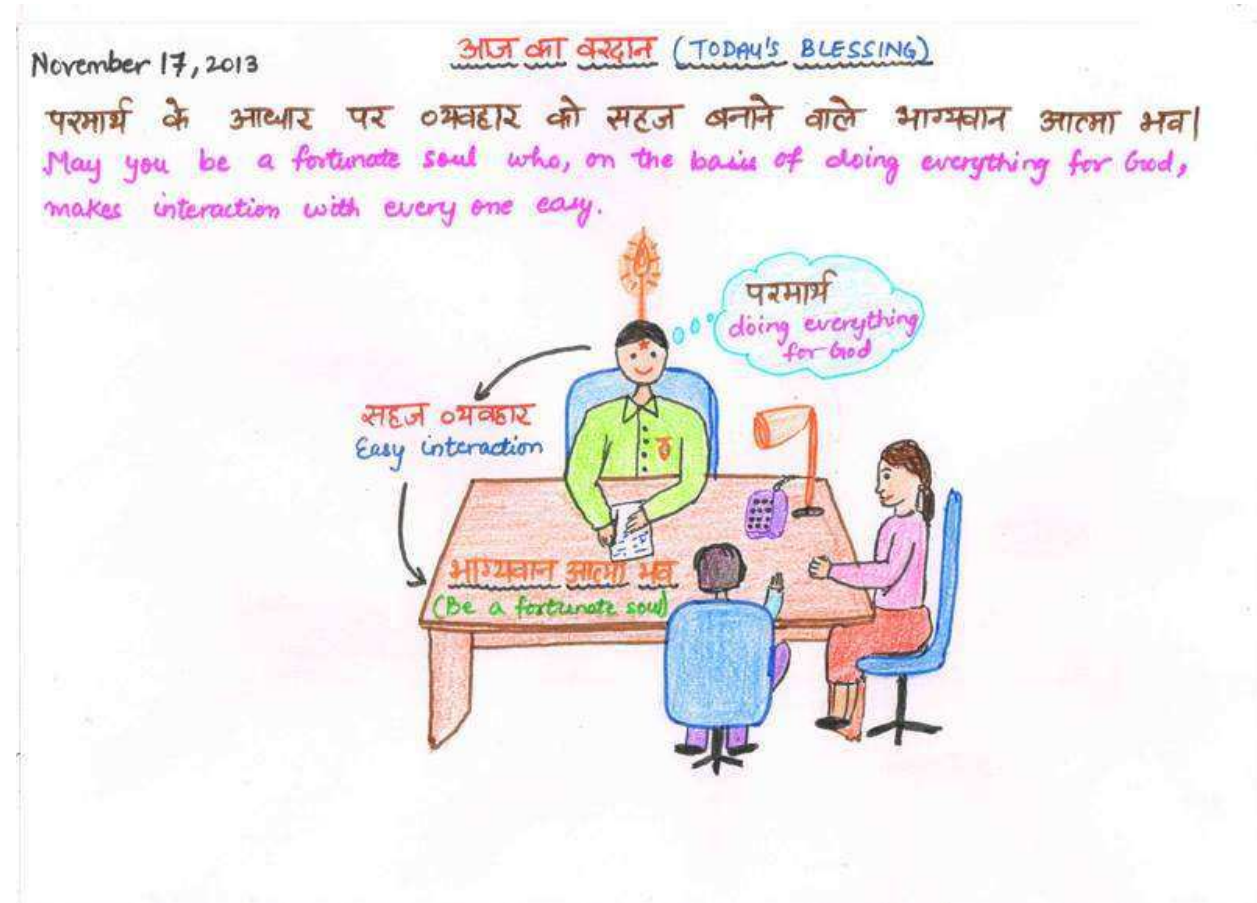 November 17, 2013
आज का वरदान (TODAY'S BLESSING)
परमार्थ के आधार पर व्यवहार को सहज बनाने वाले भाग्यवान आत्मा भव।
May you be a fortunate soul who, on the basis of doing everything for God,
makes interaction with every one easy.
परमार्थ
doing everything
for God
सहज व्यवहार
Easy interaction
भाग्यवान आत्मा भव
(Be a fortunate soul)